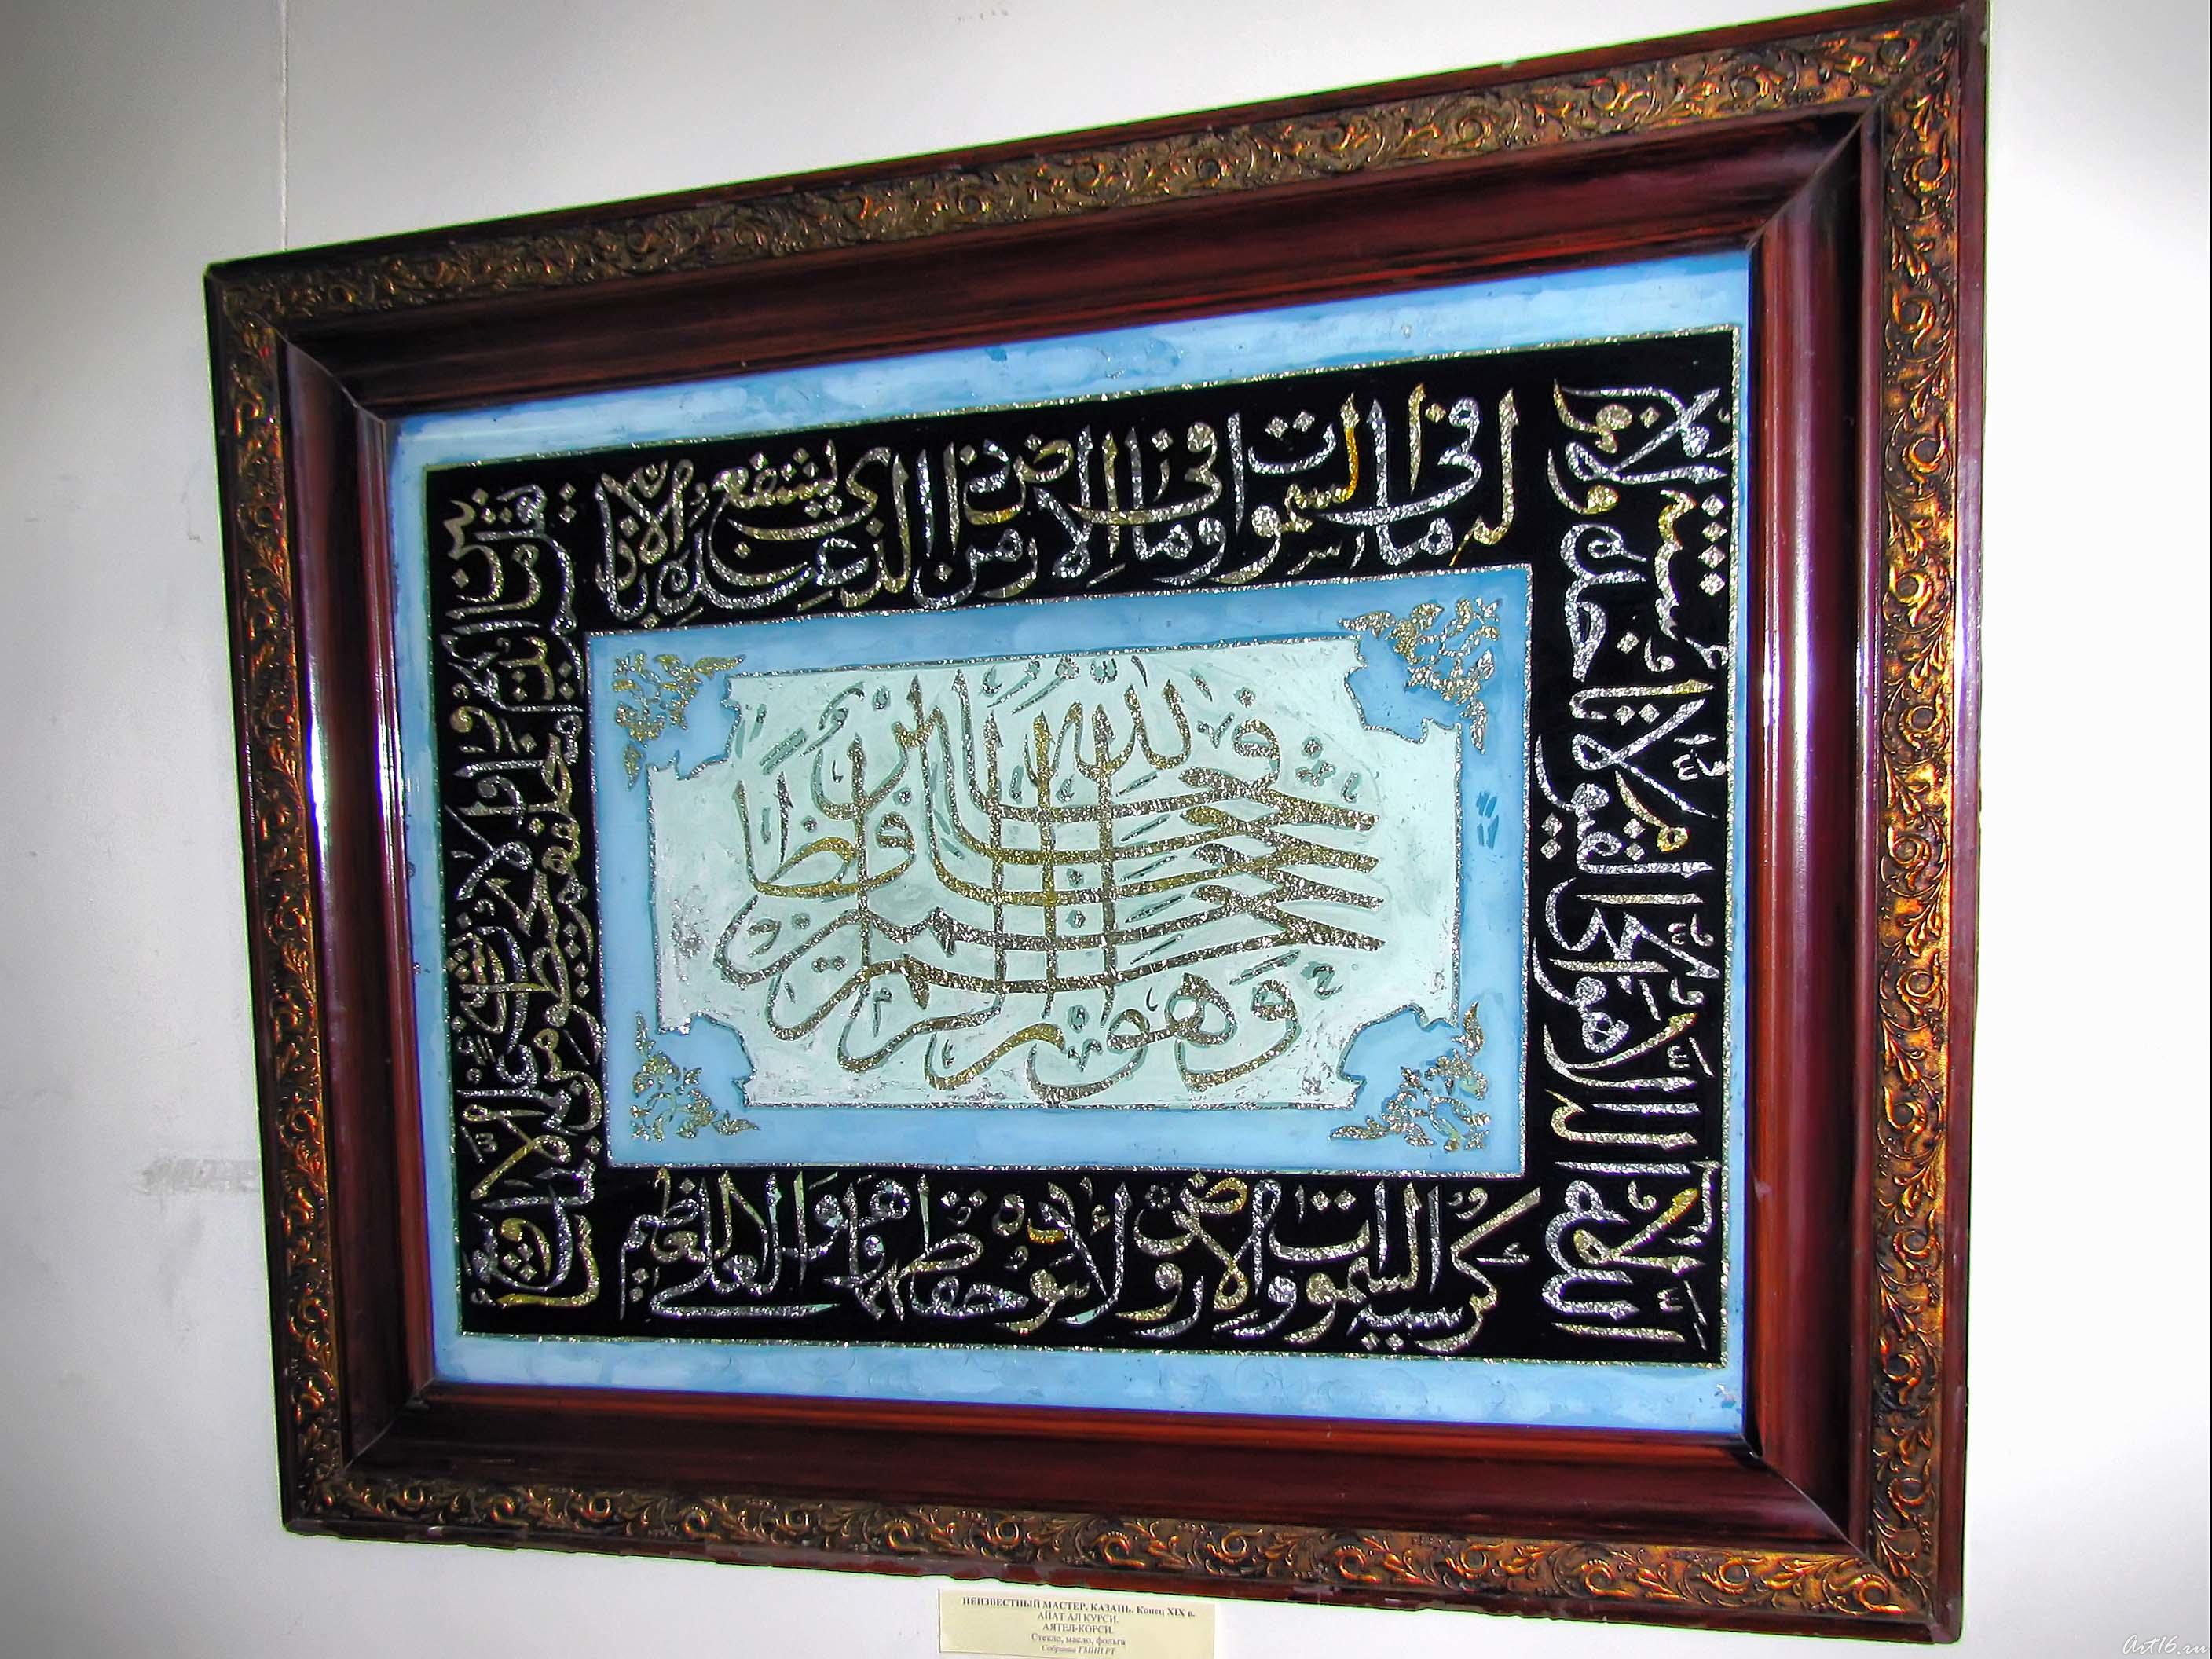 الله لا إله إلا هو الحي القيوم لا تأخذه سنة ولا نوم
له ما في السموات وما في الارض من ذا الذي يشفع عنده الا باذنه
يعلم ما بين ايديهم وما خلفهم ولا يحيطون بشيء من علمه الا بما شاء وسع
كرسيه السموات والارض ولا يؤده حفظهما وهو العلي العظيم
فالله خير حافظا وهو ارحم الراحمين
НЕИЗВЕСТНЫЙ МАСТЕР. КАЗАНЬ. Конец XIX в.
АЙАТ АЛ КУРСИ.
АЯТЕЛ-КӨРСИ.
Стекло, масло, фольга
Собрание ГМИИ РТ
Art16.ru